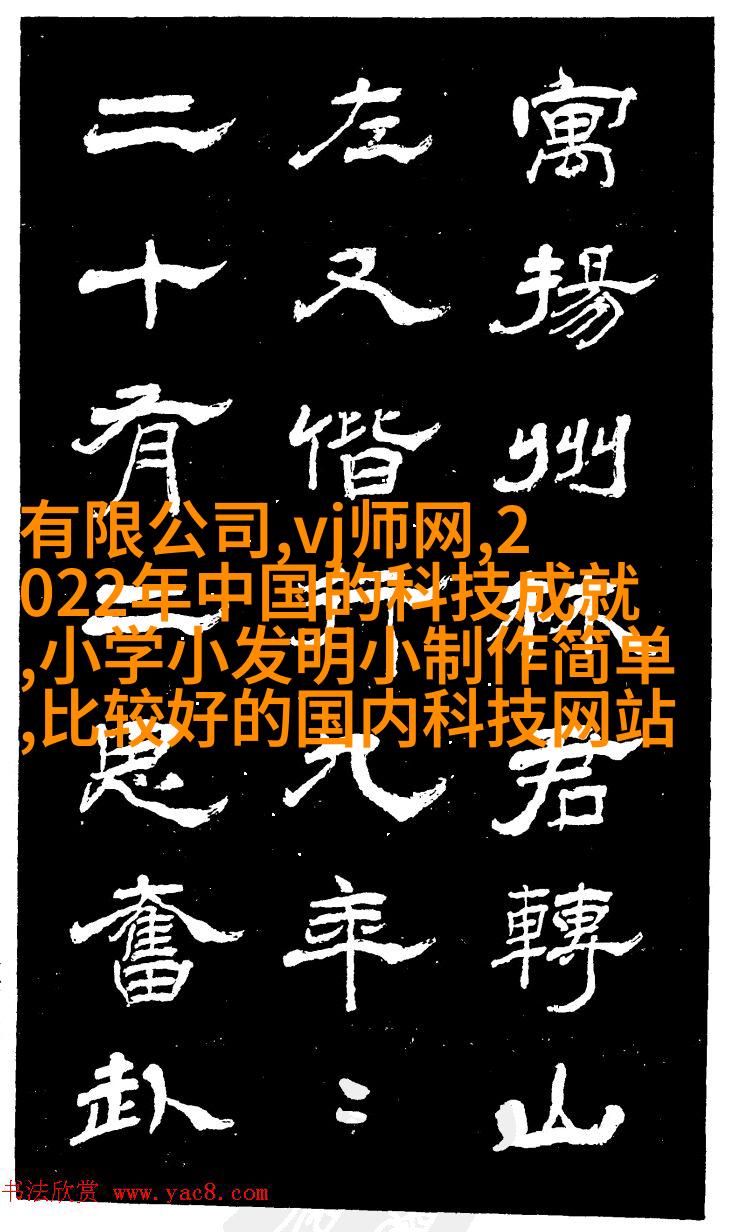 寓揚州林君轉山
左又偕行九年〻
二十有二思奮赴
有限公司,vj师网,2
022年中国的科技成就
,小学小发明小制作简单
,比较好的国内科技网站
书法欣赏 www.yac8.com